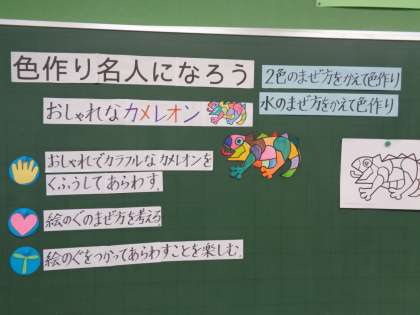 色作り名人になろう
2色のまぜ方をかえて色作り
水のまぜ方をかえて色作り
おしゃれなカメレオン
おしゃれでカラフルなカメレオンを
くふうしてあらわす。
絵のぐのまぜ方を考える
絵のぐをつかってあらわすことを楽しむ。